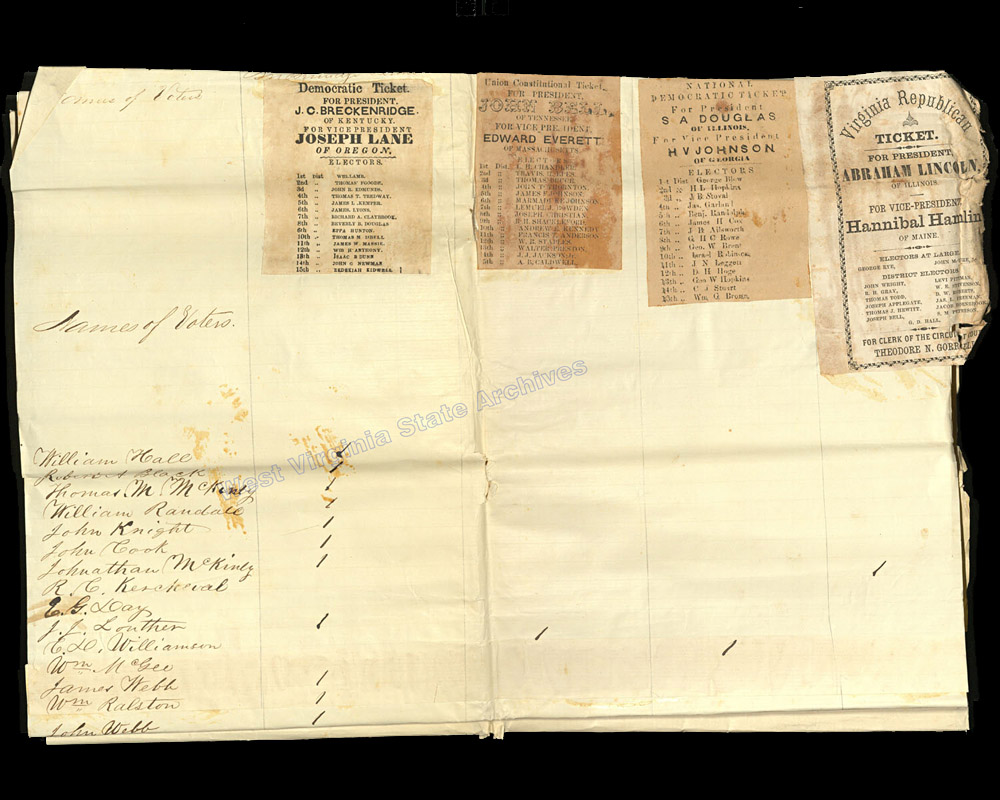 of Voters
Democratic Ticket.
FOR PRESIDENT,
J. C. BRECKENRIDGE.
OF KENTUCKY.
FOR VICE PRESIDENT
JOSEPH LANE
OF OREGON,
ELECTORS.
1st Dist WELLAMB.
2nd „ THOMAS
3d „ JOHN R. EDMUNDS.
4th „ THOMAS T. TREDWAY.
5th „ JAMES L. KEMPER.
6th „ JAMES. LYONS.
7th „ RICHARD A. CLAYBROOK.
8th „ BEVERLY B. DOUGLAS
9th „ EPPA HUNTON.
10th „ THOMAS M. ISBELL
11th „ JAMES W. MASSIE.
12th „ WM H ANTHONY.
13th „ ISAAC B DUNN
14th „ JOHN G NEWMAN
15th „ ZEDEKIAH KIDWELL
Union Constitutional Ticket.
FOR PRESIDENT,
JOHN BELL,
OF TENNESSEE.
FOR VICE PRESIDENT,
EDWARD EVERETT
OF MASSACHUSETTS.
ELECTORS
1st Dist. L. H. CHANDLER
2nd TRAVIS
3d THOMAS BRUCE
4th JOHN T. THORNTON
5th JAMES F. JOHNSON
6th MARMADUKE JOHNSON
7th LEMUEL J. BOWDEN
8th JOSEPH CHRISTIAN
9th B. H. SHACKELFORD
10th ANDREW E. KENNEDY
11th FRANCIS T. ANDERSON
12th W. R. STAPLES
13th WALTER PRESTON.
14th J. J. JACKSON, Jr.
15th A. B. CALDWELL.
NATIONAL
DEMOCRATIC TICKET
For President
S A DOUGLAS
OF ILLINOIS,
For Vice President
H V JOHNSON
OF GEORGIA
ELECTORS
1st Dist George Blow
2nd „ H L Hopkins
3d „ J B Stovall
4th „ Jas. Garland
5th „ Benj. Randolph
6th „ James H Cox
7th „ J B Ailsworth
8th „ G H C Rowe
9th „ Geo. W Brent
10th „ Israel Robinson
11th „ J N Leggett
12th „ D H Hoge
13th „ Geo W Hopkins
14th „ C J Stuart
15th „ Wm G Brown,
Virginia Republican
TICKET.
FOR PRESIDENT,
ABRAHAM LINCOLN,
OF ILLINOIS.
FOR VICE-PRESIDENT
Hannibal Hamlin
OF MAINE.
ELECTORS AT LARGE.
GEORGE RYE, JOHN
DISTRICT ELECTORS
JOHN WRIGHT, LEVI PITMAN,
R. H. GRAY, W. E. STEVENSON,
THOMAS TODD, D. W. ROBERTS,
JOSEPH APPLEGATE, JAS. L. FREEMAN,
THOMAS J. HEWITT, JACOB HORNBROOK,
JOSEPH BELL, S. M. PETERSON,
G. D. HALL,
FOR CLERK OF THE CIRCUIT
THEODORE N. GORRELL
Names of Voters.
West Virginia State Archives
William Hall
Robert A Black
Thomas M McKinly
William Randall
John Knight
John Cook
Johnathan McKinly
R. C. Kercheval
E. G. Day
J. J. Louther
E. D. Williamson
Wm McGee
James Webb
Wm Ralston
John Webb